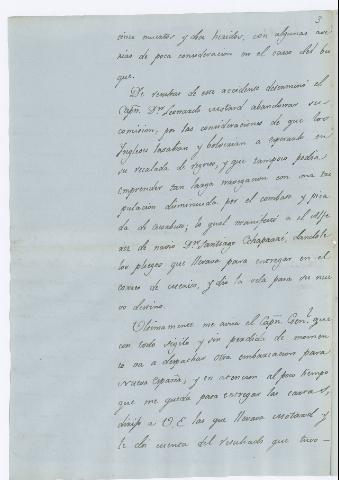 3
cinco muertos y dos heridos, con algunas ave
rias de poca consideracion en el casco del bu
que.
De resultas de este accidente determinó el
Capn. Dn. Leonardo abandonar su
comision, por las consideraciones de que los
Ingleses y volverian á esperarlo en
su recalada de regreso, y que tampoco podia
emprender tan larga navegacion con una tri
pulacion disminuida por el combate y
da de; lo qual manifestó a el Alfe
rez de navio Dn. Santiago, dandole
los pliegos que llevava para entregar en el
correo de, y dio la vela para su nue
vo destino.
Ultimamente me avisa el Capn. Genl. que
con todo sigilo y sin perdida de momen
to va a despachar otra embarcacion para
Nueva España, y en atencion al poco tiempo
que me queda para entregar las cartas,
dirijo á V.E. las que llevava y
le doi cuenta del resultado que tuvo